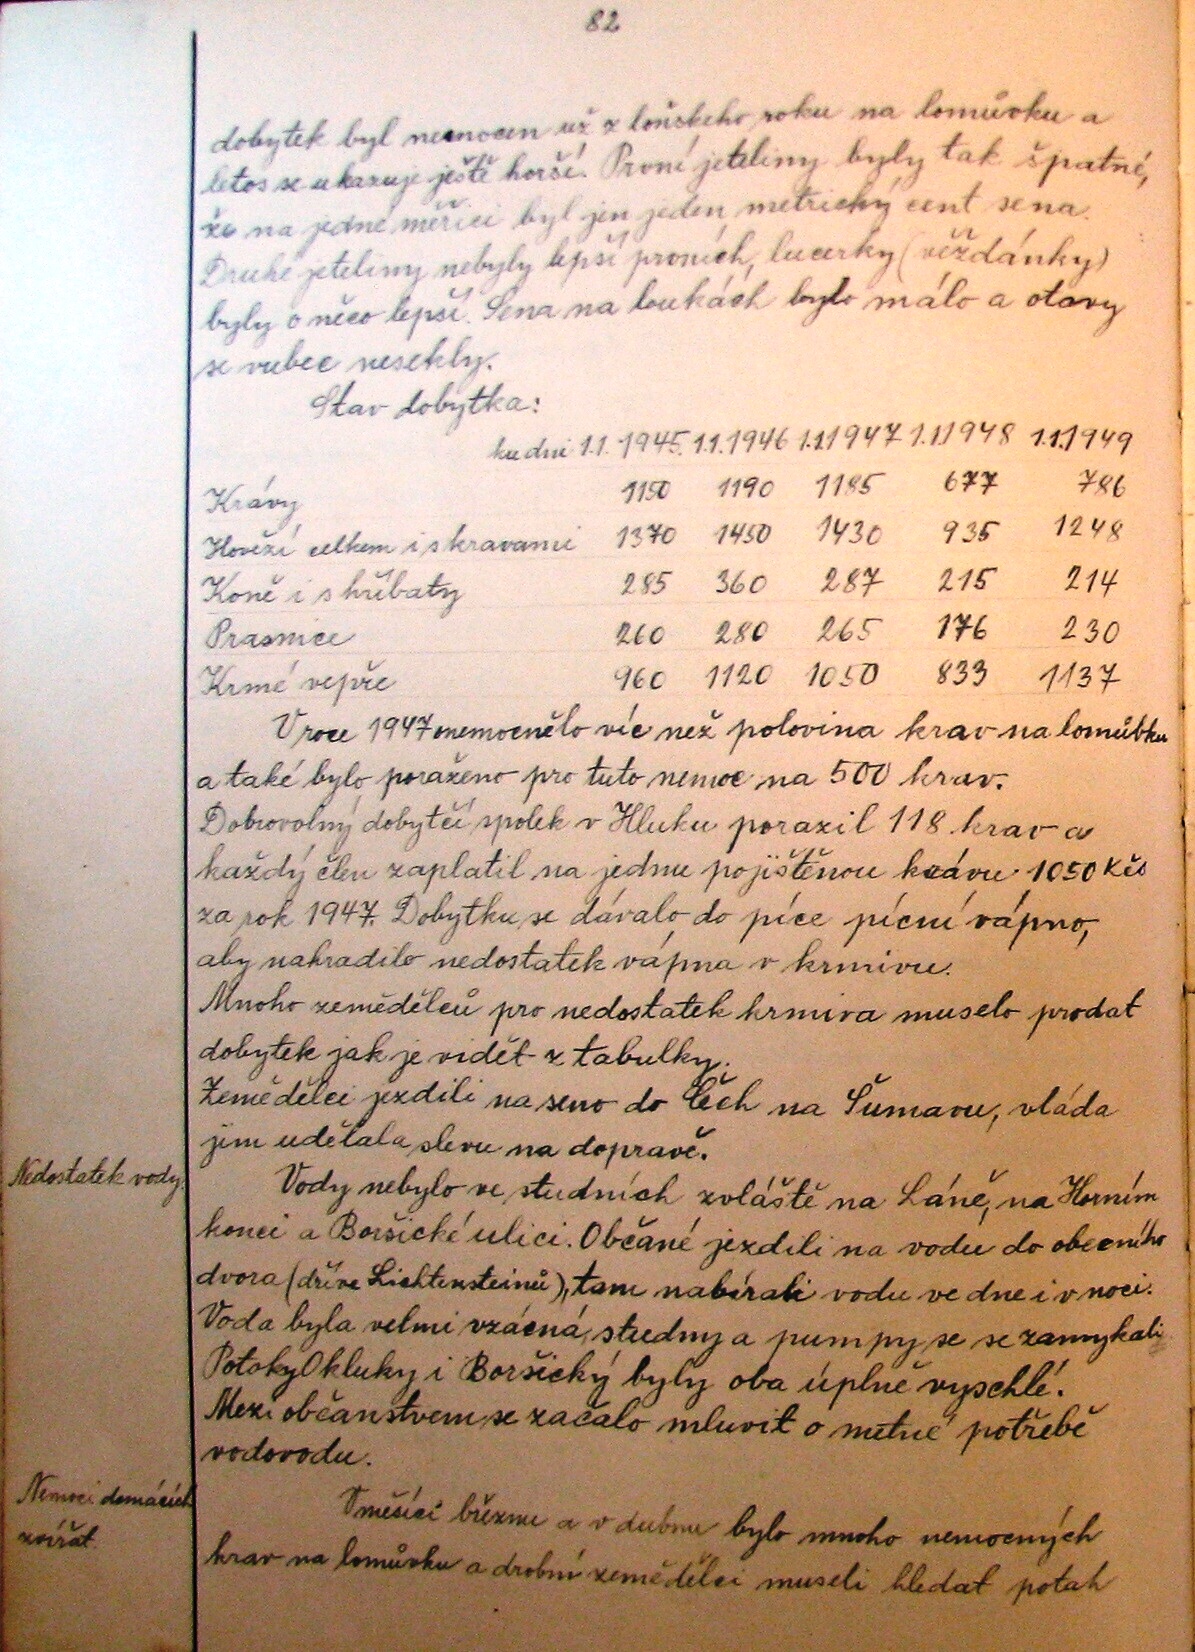 82
dobytek byl nemocen už z loňskeho roku na lomůvku a
letos se ukazuje ještě horší. První jeteliny byly tak špatné,
že na jedné měřici byl jen jeden metrický cent sena.
Druhé jeteliny nebyly lepší prvních, lucerky (věždánky)
byly o něco lepší. Sena na loukách bylo málo a otavy
se vubec nesekly.
Stav dobytka:
ku dni 1.1.1945. 1.1.1946 1.1.1947 1.1.1948 1.1.1949
Krávy 1150 1190 1185 677 786
Hovězí celkem i s kravami 1370 1450 1430 935 1248
Koně i s hříbaty 285 360 287 215 214
Prasnice 260 280 265 176 230
Krmé vepře 960 1120 1050 833 1137
V roce 1947 onemocnělo víc než polovina krav na lomůbku
a také bylo poraženo pro tuto nemoc na 500 krav.
Dobrovolný dobytčí spolek v Hluku porazil 118 krav a
každý člen zaplatil na jednu pojištěnou krávu 1050 Kčs
za rok 1947. Dobytku se dávalo do píce pícní vápno,
aby nahradilo nedostatek vápna v krmivu.
Mnoho zemědělců pro nedostatek krmiva muselo prodat
dobytek jak je vidět z tabulky.
Zemědělci jezdili na seno do Čech na Šumavu, vláda
jim udělala slevu na dopravě.
Nedostatek vody.
Vody nebylo ve studních zvláště na Láně, na Horním
konci a Boršické ulici. Občané jezdili na vodu do obecního
dvora (dříve Lichtensteinů), tam nabírali vodu ve dne i v noci.
Voda byla velmi vzácná, studny a pumpy se se zamykali.
Potoky Okluky i Boršický byly oba úplně vyschlé.
Mezi občanstvem se začalo mluvit o nutné potřebě
vodovodu.
Nemoci domácích
zvířat.
V měsíci březnu a v dubnu bylo mnoho nemocných
krav na lomůvku a drobní zemědělci museli hledat potah